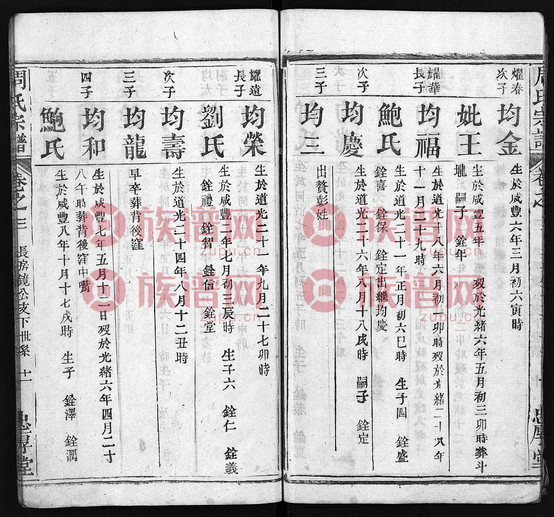 周氏宗譜
卷之
耀春
次子
均金
生於咸豐六年三月初六寅時
妣王
生於咸豐五年
歿於光緒六年五月初三卯時葬斗
壠
嗣子
銓年
耀華
長子
均福
生於道光十八年六月初二卯時歿於光緒二十八年
十一月二十九時
鮑氏
生於道光二十一年正月初六巳時
生子四
銓盛
銓喜
銓保
銓定出繼均慶
次子
均慶
生於道光二十六年八月十八戌時
嗣子
銓定
三子
均三
出贅彭姓
忠厚堂
耀遠
長子
均榮
生於道光二十一年九月二十七卯時
劉氏
生於咸豐二年七月初三辰時
生子六
銓仁
銓義
銓禮
銓智
銓信
銓堂
次子
均壽
生於道光二十四年八月十二丑時
三子
均龍
早卒葬背後窪
四子
均和
生於咸豐七年五月十二日歿於光緒六年四月二十
八午時葬背後窪中嘴
鮑氏
生於咸豐八年十月十七戌時
生子
銓澤
銓潤
周氏宗譜
卷之三
長房
支下世系
十一
忠厚堂
族譜网
族譜网
族譜网
族譜网